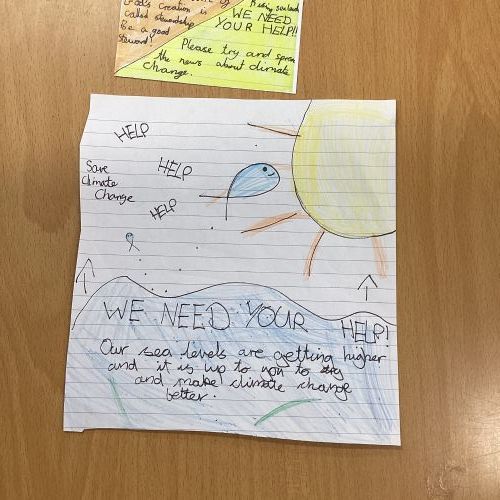 God's Creation is
called stewardship
Be a good
steward!
WE NEED
YOUR HELP!!
Please try and
the news about climate
change.
HELP
HELP
HELP
Save
Climate
Change
WE NEED YOUR HELP!
Our sea levels are getting higher
and it is up to you to
and make climate change
better.